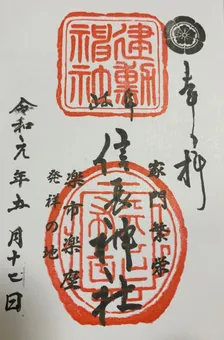 奉拝
建勲
神社
岐阜
家門繁栄
信長神社
楽市楽座
発祥の地
令和元年五月十七日